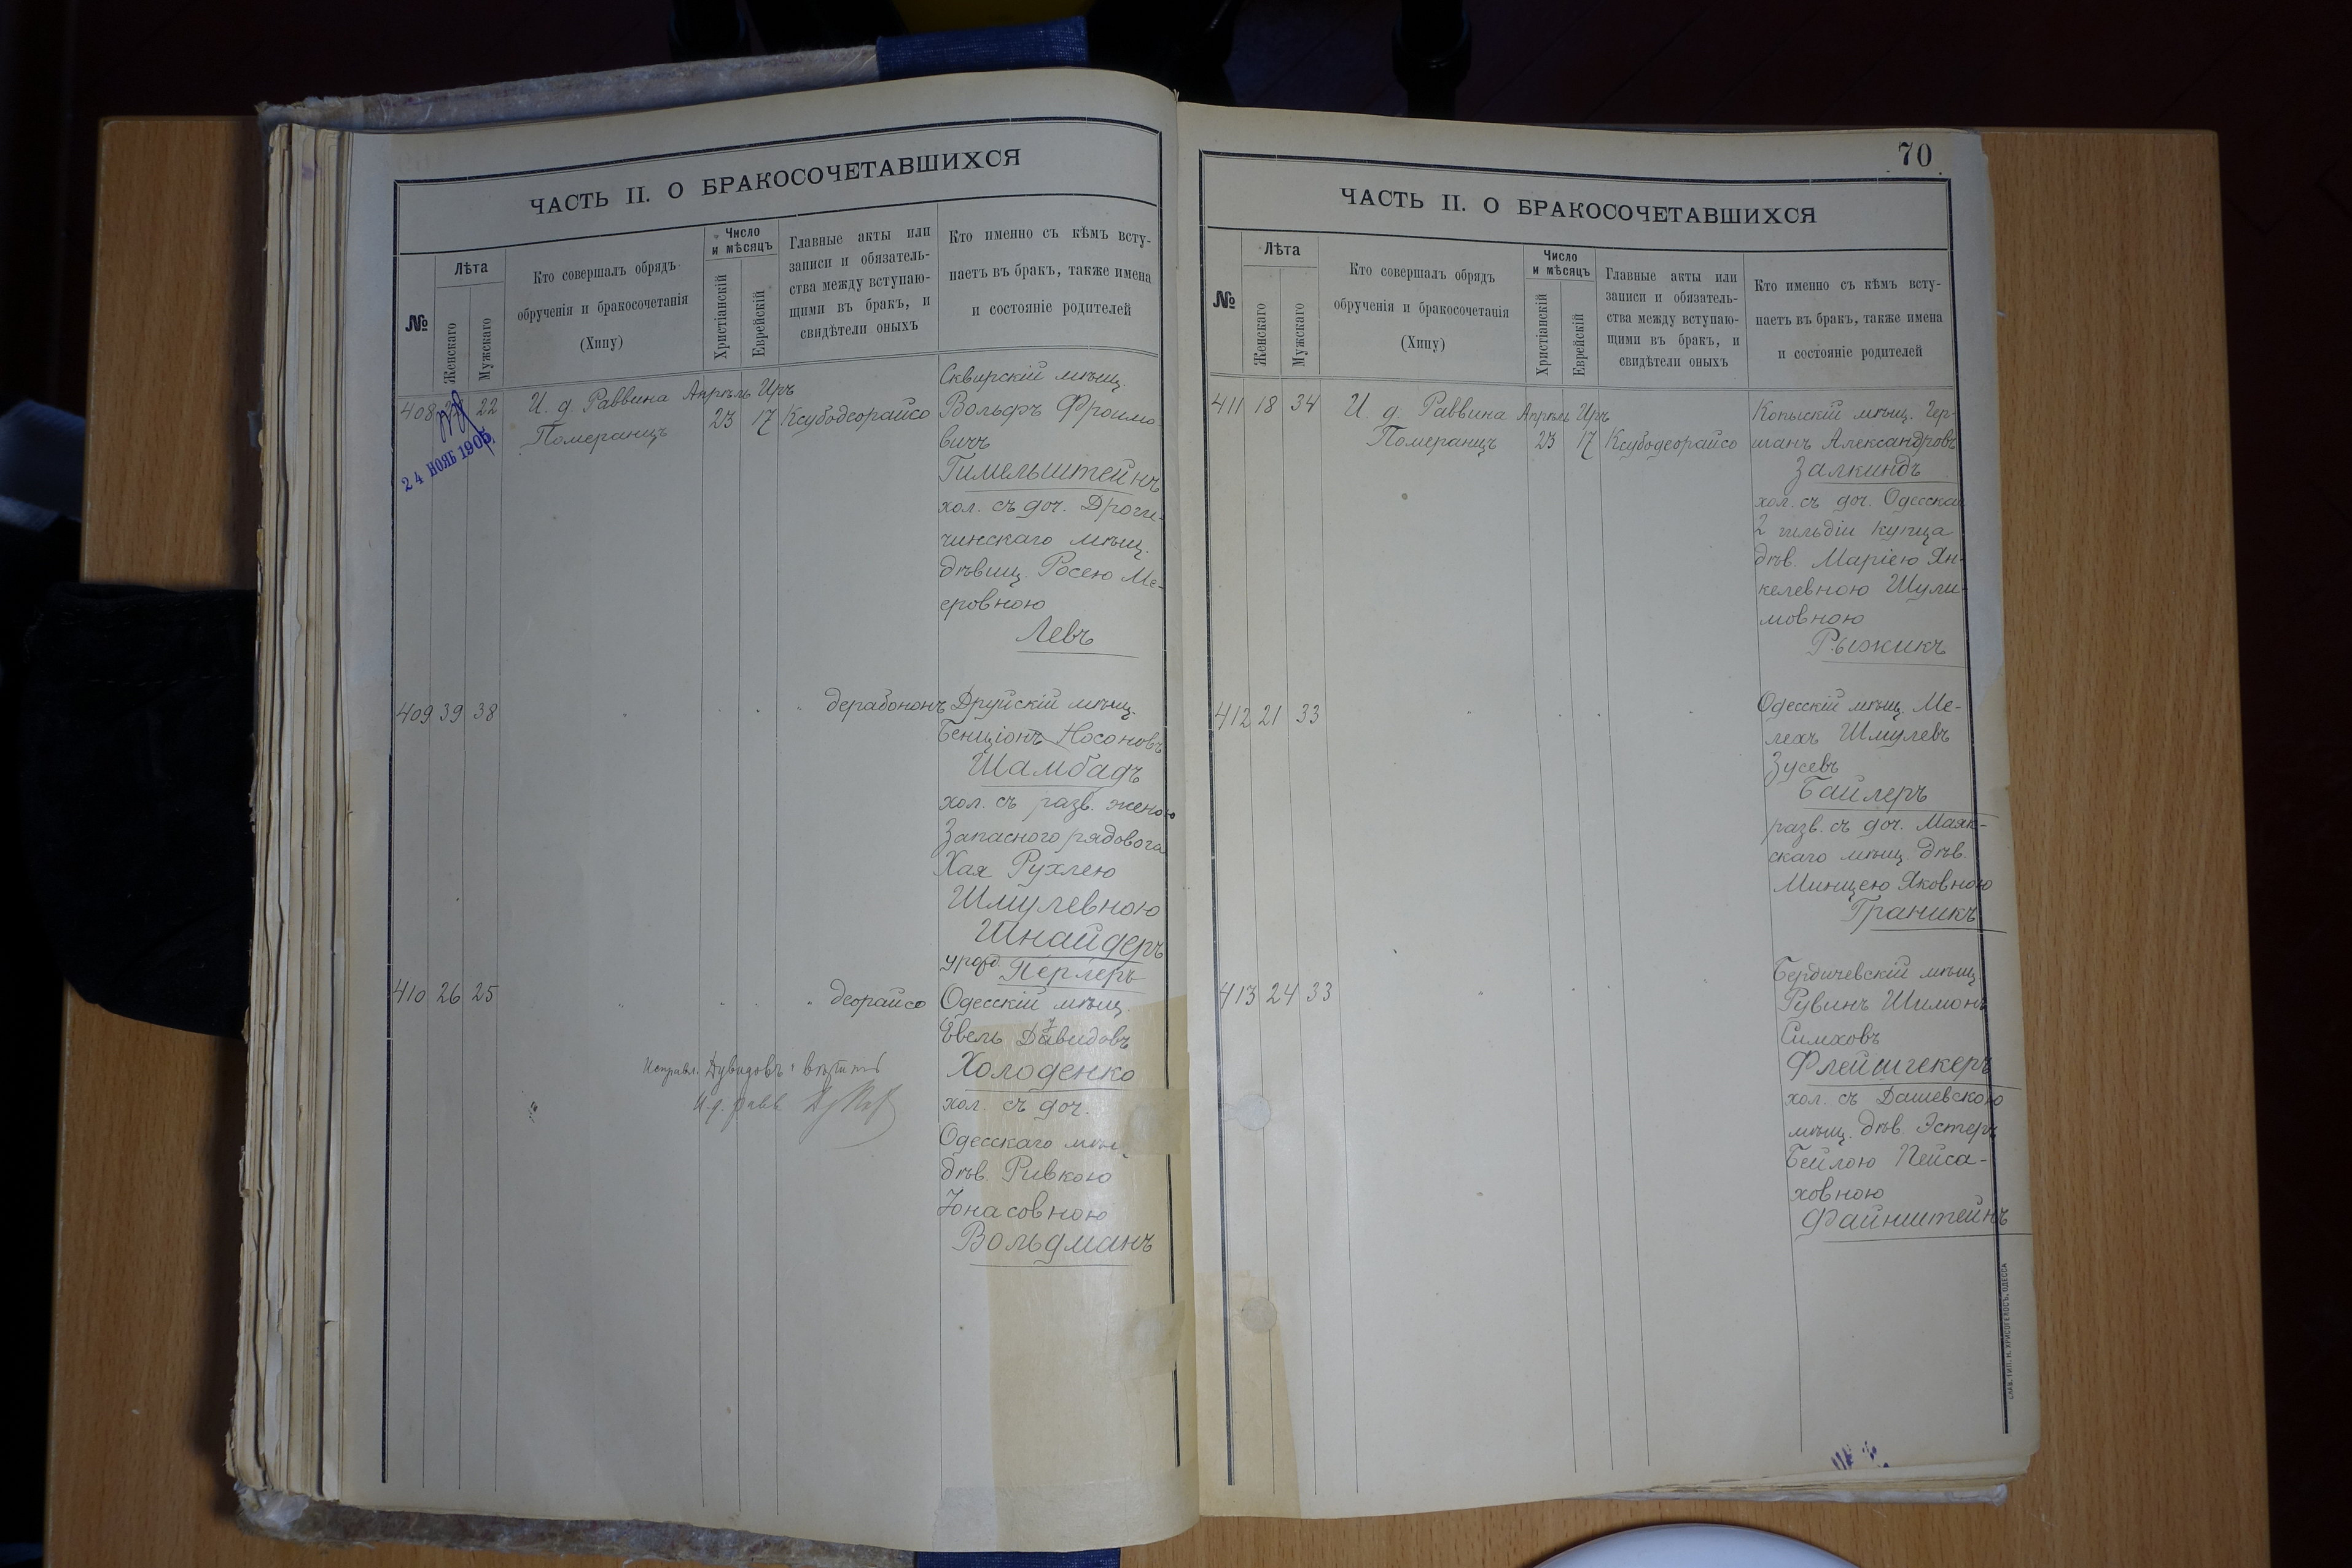 ЧАСТЬ II. О БРАКОСОЧЕТАВШИХСЯ
№
Лѣта
Женскаго
Мужскаго
Кто совершалъ обрядъ
обрученія и бракосочетанія
(Хипу)
Число
и мѣсяцъ
Христіанскій
Еврейскій
Главные акты или
записи и обязатель-
ства между вступаю-
щими въ бракъ, и
свидѣтели оныхъ
Кто именно съ кѣмъ всту-
паетъ въ бракъ, также имена
и состояніе родителей
408 22
24 НОЯБ 1905
И. д. Раввина
Померанцъ
Апрѣль Иръ
23 17 Ксубодеорайсо
Сквирскій мѣщ.
Вольфъ Фроимо-
вичъ
Гимельштейнъ
хол. съ доч. Дроги-
чинскаго мѣщ.
дѣвиц. Росею Ме-
еровною
Левъ
409 39 38 дерабононъ
Друйскій мѣщ.
Бенціонъ Носоновъ
Шамбадъ
хол. съ разв. женою
Запасного рядового
Хая Рухлею
Шмулевною
Шнайдеръ
урожд. Перлеръ
410 26 25 деорайсо
Одесскій мѣщ.
Евель Давидовъ
Холоденко
хол. съ доч.
Одесскаго мѣщ.
дѣв. Ривкою
Іонасовною
Вольдманъ
Исправл. Дувидовъ вѣрить
И. д. равв.
70
ЧАСТЬ II. О БРАКОСОЧЕТАВШИХСЯ
№
Лѣта
Женскаго
Мужскаго
Кто совершалъ обрядъ
обрученія и бракосочетанія
(Хипу)
Число
и мѣсяцъ
Христіанскій
Еврейскій
Главные акты или
записи и обязатель-
ства между вступаю-
щими въ бракъ, и
свидѣтели оныхъ
Кто именно съ кѣмъ всту-
паетъ въ бракъ, также имена
и состояніе родителей
411 18 34
И. д. Раввина
Померанцъ
Апрѣль Иръ
23 17 Ксубодеорайсо
Копыскій мѣщ. Гер-
манъ Александровъ
Залкиндъ
хол. съ доч. Одесска
2 гильдіи купца
дѣв. Маріею Ян-
келевною Шули-
мовною
Рыжикъ
412 21 33
Одесскій мѣщ. Ме-
лехъ Шмулевъ
Зусевъ
Байлеръ
разв. съ доч. Маяк-
скаго мѣщ. дѣв.
Минцею Яковною
Граникъ
413 24 33
Бердичевскій мѣщ
Рувинъ Шимонъ
Симховъ
Флейшгекеръ
хол. съ Дашевскою
мѣщ. дѣв. Эстеръ
Бейлою Пейса-
ховною
Файнштейнъ
СЛАВ. ТИП. Н. ХРИСОГЕЛОСЪ, ОДЕССА